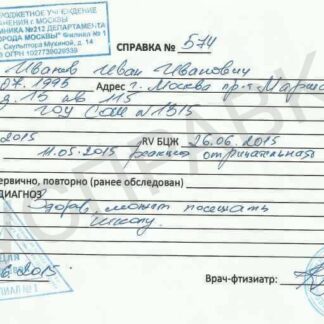 БЮДЖЕТНОЕ УЧРЕЖДЕНИЕ
АНЕНИЯ г. МОСКВЫ
ИНИКА №212 ДЕПАРТАМЕНТА
ГОРОДА МОСКВЫ" Филиал № 1
Скульптора Мухиной, д. 14
ОГРН 1027739029339
СПРАВКА № 574
Иванов Иван Иванович
07.1995 Адрес г. Москва пр-т Марша
д. 13 кв 115
ГОУ СОШ N 1315
2015 RV БЦЖ 26.06.2015
11.05.2015 реакция отрицательная
ервично, повторно (ранее обследован)
ДИАГНОЗ
Здоров, может посещать
школу.
2015
Врач-фтизиатр:
ДЛЯ
ИЛИАЛ № 1
СПРАВК